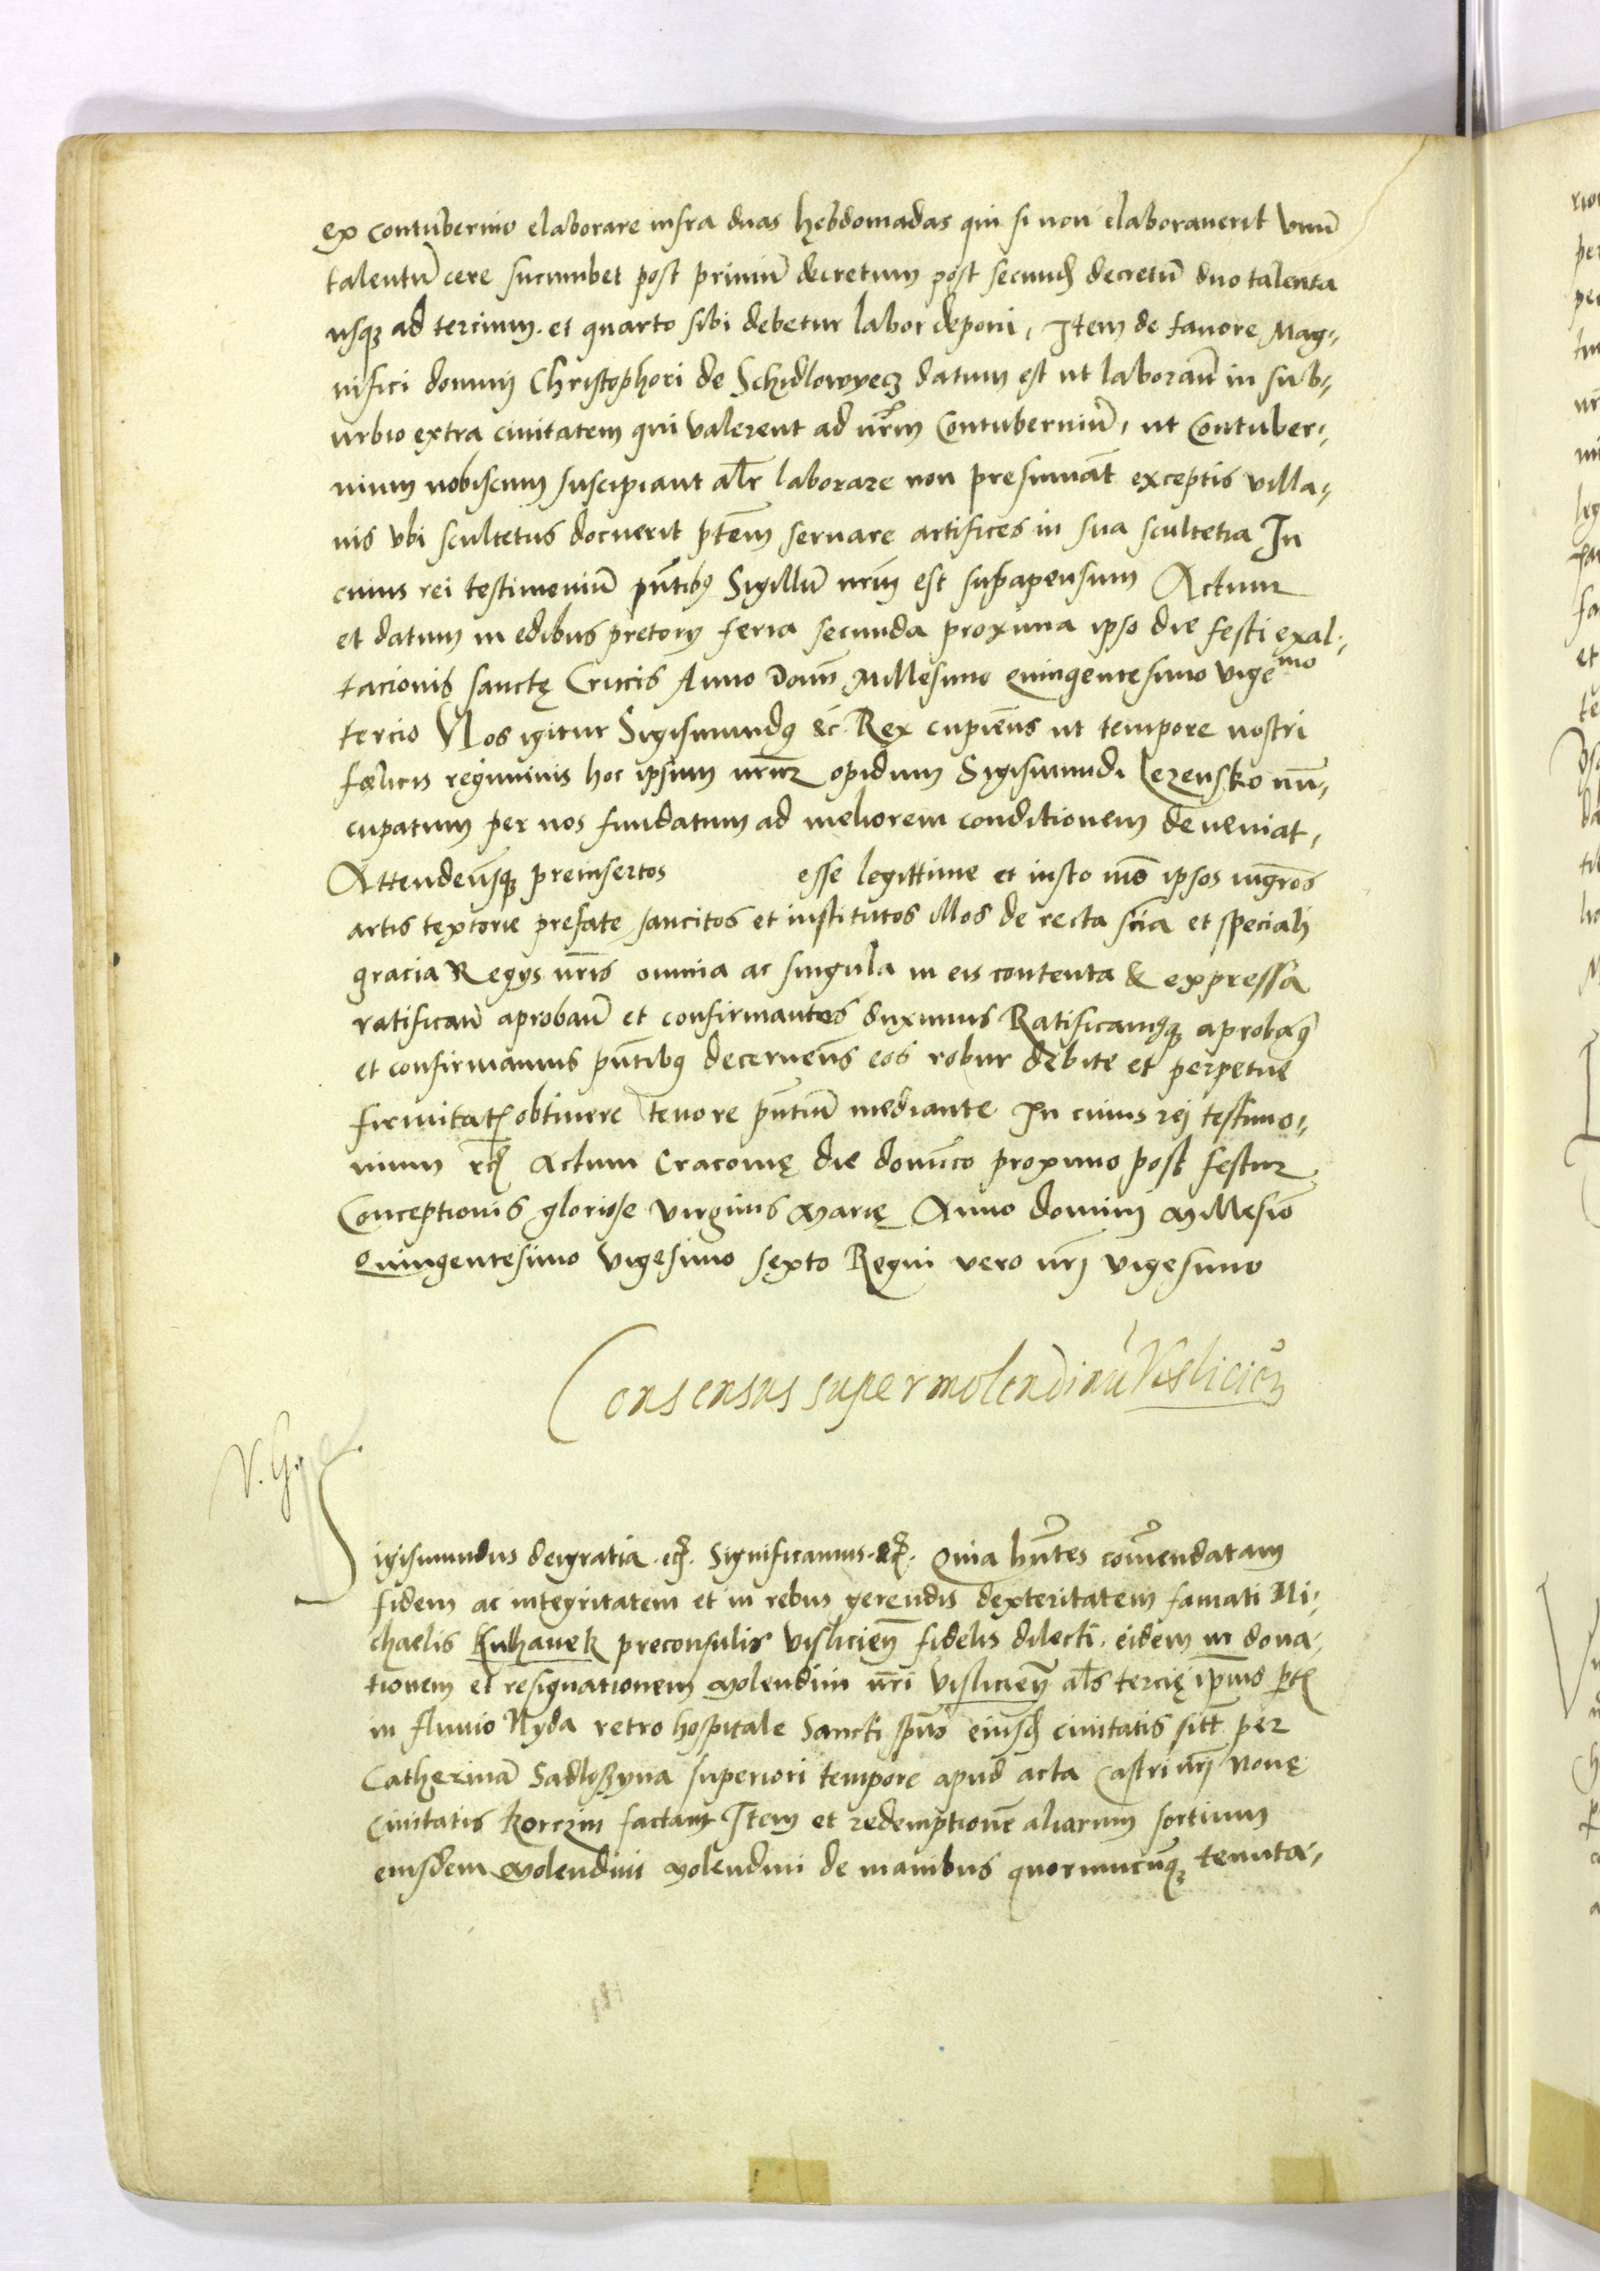 ex contubernio elaborare infra duas hebdomadas qui si non elaboraverit unũ
talentũ cere sucumbet post primũ decretum post secundũ decretũ duo talenta
usqȝ ad tercium. et quarto sibi debetur labor deponi, Item de favore Mag-
nifici domini Christophori de Schidlowyecz datum est ut laborañ in sub-
urbio extra civitatem qui valerent ad nr̃m Contuberniũ, ut Contuber-
nium nobiscum suscipiant alr̃ laborare non presumãt exceptis villa-
nis ubi scultetus docuerit ptẽm servare artifices in sua scultetia In
cuius rei testimoniũ pñtibꝰ Sigillũ nrĩm est subapensum Actum
et datum in edibus pretorij feria secunda proxima ipso die festi exal-
tacionis sanctę Crucis Anno Domĩ Millesimo quingentesimo vigemo
tercio Nos igitur Sigismundꝰ &c Rex cupiẽns ut tempore nostri
fœlicis regiminis hoc ipsum nrũm opidum Sigismundi Jezensko nũ-
cupatum per nos fundatum ad meliorem conditionem deveniat,
Attendeñsqȝ preinsertos esse legittime et iusto mõ ipsos mgrõs
artis textorie prefate, sancitos et institutos illos de recta sciã et speciali
gracia Regijs nr̃is omnia ac singula in eis contenta & expressa
ratificañ aprobañ et confirmantes duximus Ratificamꝰqȝ aprobamꝰ
et confirmamus pñtibꝰ decerneñs eos robur debite et perpetue
firmitatẽ obtinere tenore pñtiũ mediante In cuius rei testimo-
nium rc̃ Actum Cracovię die domĩco proximo post festum
Conceptionis gloriose virginis Marię Anno domini Millesimo
quingentesimo vigesimo sexto Regni vero nrĩ vigesimo
Consensus super molendinũ Visliciẽn
V. G.
Sigismundus dei gratia .ec̃. Significamus .&c̃. Quia hñtes com̃endatam
fidem ac integritatem et in rebus gerendis dexteritatem famati Ni-
chaelis Kulhanek preconsulis visliciẽn fidelis dilecti. eidem in dona-
tionem et resignationem Molendini nr̃i visliciẽn als̃ tercię ip̃ius ptẽ
in fluvio Nyda retro hospitale Sancti spũs eiusdẽ civitatis sitt̃ per
Catherinã Sadloszyna superiori tempore apud acta Castri nrĩ Novę
Civitatis Korczin factam Item et redemptionẽ aliarum sortium
eiusdem Molendini Molendini de manibus quorumcũqȝ tenuta-